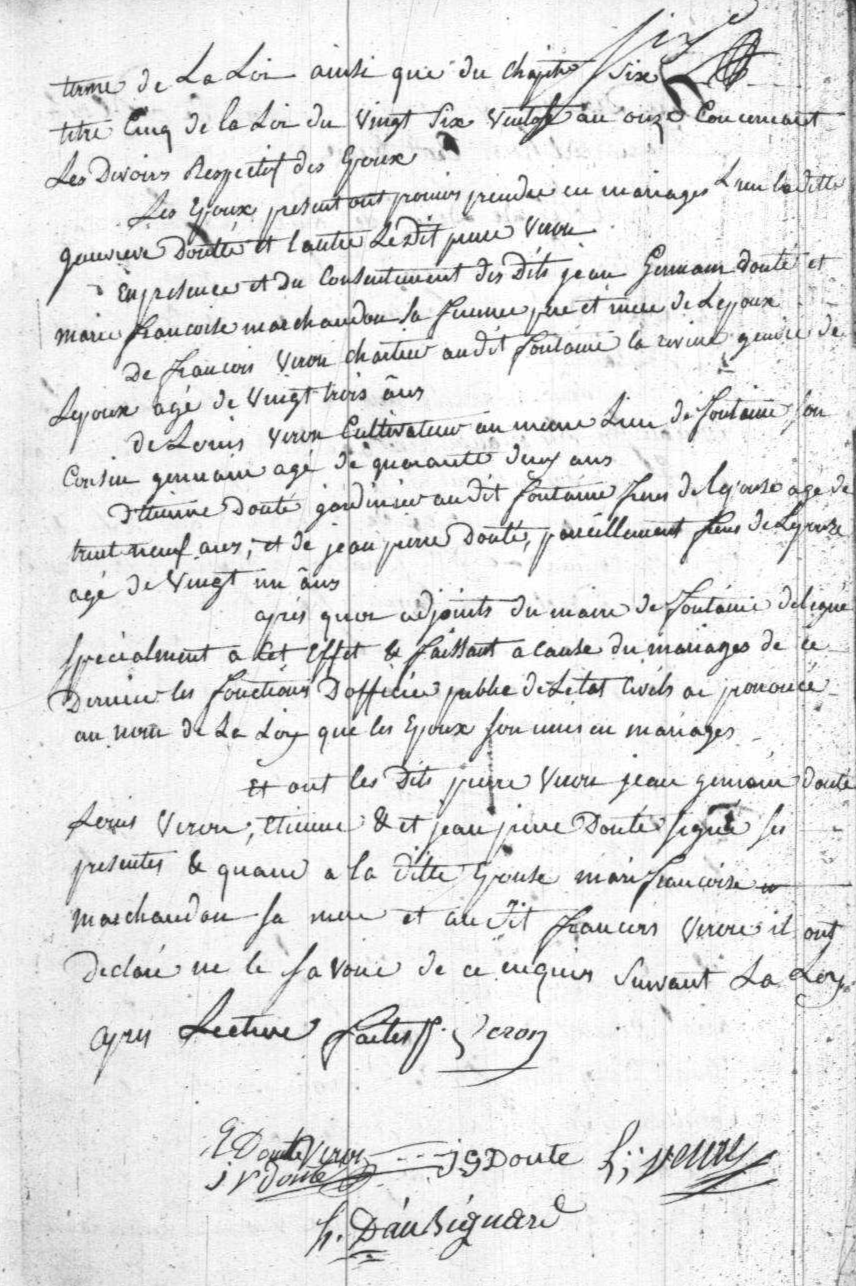 Sixe
terme de La Loi ainsi que du chapitre Six
titre Cinq de la Loi du Vingt Six Ventose an onze Concernant
Les Devoirs Respectif des Epoux
Les Epoux present ont promis prendre en mariages L'un la ditte
genevieve Douté et lautre Le dit pierre Veron
En presence et du Consentement des Dits jean Germain douté et
marie francoise marchandon sa femme pere et mere de Lepouse
De francois Veron chartier audit fontaine la rivine de
Lepoux agé de Vingt trois âns
de Louis Veron Cultivateur au meme Lieu de fontaine son
Cousin germain agé de quarante deux ans
D'Etienne Douté jardinier audit fontaine frere de lepouse agé de
trent neuf ans, et de jean pierre Douté, pareillement frere de Lepouze
agé de Vingt un âns
aprés quoi adjoints du maire de fontaine delegué
specialment a Cet Effet & faissant a cause du mariages de ce
Dernier les fonctions Dofficier public de Letat Civils ai prononcé
au nom de La Loy que les Epoux son unis en mariages
Et ont les Dits pierre Veron jean germain douté
Louis Veron, Etienne & et jean pierre Douté signé ses
presentes & quand a la ditte Epouse marie francoise
marchandon sa mere et au dit francois Veron il ont
Declaré ne le savoir de ce enquis Suivant La Loy
apres Lecture faites P. Veron
E Douté Veron JG Douté L; veron
J P douté
h. Daubignard